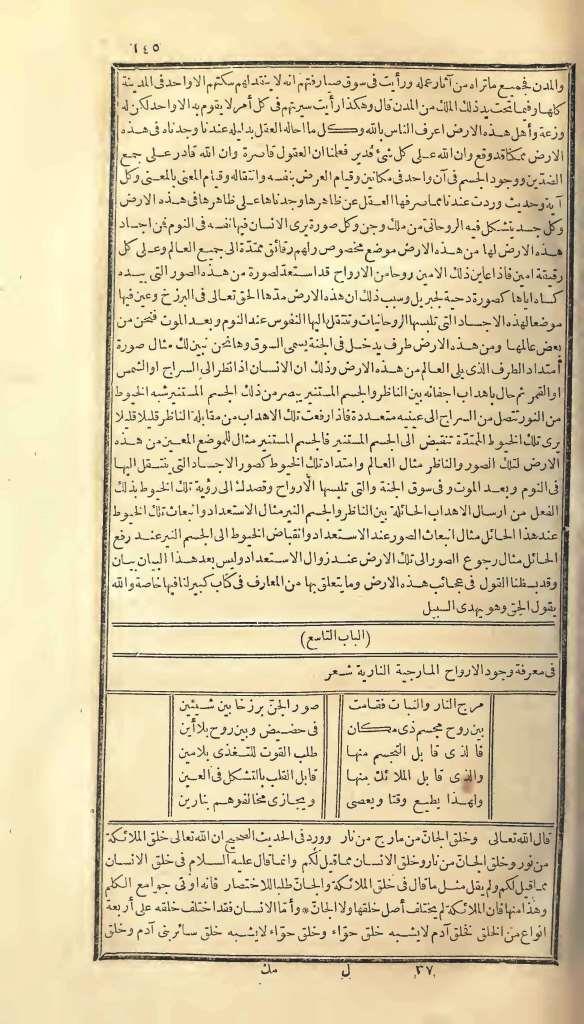 ١٤٥
والمدن فجميع ماتراه من آثار عمله ورأيت فى سوق صيارفتهم انه لا ينتقد لهم سكتهم الا واحد فى المدينة
كلها وفيما تحت يد ذلك الملك من المدن قال وهكذا رأيت سيرتهم فى كل أمر لا يقوم به الا واحد لكن له
وزعة وأهل هذه الارض اعرف الناس بالله وكل ما احاله العقل بدليله عندنا وجدناه فى هذه
الارض ممكنا قد وقع وان الله على كل شئ قدير فعلمنا ان العقول قاصرة وان الله قادر على جمع
الضدين ووجود الجسم فى آن واحد فى مكانين وقيام العرض بنفسه وانتقاله وقيام المعنى بالمعنى وكل
آية وحديث وردت عندنا مما صرفها العقل عن ظاهرها وجدناها على ظاهرها فى هذه الارض
وكل جسد يتشكل فيه الروحانى من ملك وجن وكل صورة يرى الانسان فيها نفسه فى النوم فمن اجساد
هذه الارض لها من هذه الارض موضع مخصوص ولهم رقائق ممتدة الى جميع العالم وعلى كل
رقيقة امين فاذا عاين ذلك الامين روحا من الارواح قد استعد لصورة من هذه الصور التى بيده
كساه اياها كصورة دحية لجبريل وسبب ذلك ان هذه الارض مدها الحق تعالى فى البرزخ وعين فيها
موضعا لهذه الاجساد التى تلبسها الروحانيات وتنتقل اليها النفوس عند النوم وبعد الموت فنحن من
بعض عالمها ومن هذه الارض طرف يدخل فى الجنة يسمى السوق وها نحن نبين لك مثال صورة
أمتداد الطرف الذى يلى العالم من هذه الارض وذلك ان الانسان اذا نظر الى السراج او الشمس
او القمر ثم حال باهداب اجفانه بين الناظر والجسم المستنير يبصر من ذلك الجسم المستنير شبه الخيوط
من النور تتصل من السراج الى عينيه متعددة فاذا رفعت تلك الاهداب من مقابلة الناظر قليلا قليلا
يرى تلك الخيوط الممتدة تنقبض الى الجسم المستنير فالجسم المستنير مثال للموضع المعين من هذه
الارض لتلك الصور والناظر مثال العالم وامتداد تلك الخيوط كصور الاجساد التى ينتقل اليها
فى النوم وبعد الموت وفى سوق الجنة والتى تلبسها الارواح وقصدك الى رؤية تلك الخيوط بذلك
الفعل من ارسال الاهداب الحائلة بين الناظر والجسم النير مثال الاستعداد وانبعاث تلك الخيوط
عند هذا الحائل مثال انبعاث الصور عند الاستعداد وانقباض الخيوط الى الجسم النير عند رفع
الحائل مثال رجوع الصور الى تلك الارض عند زوال الاستعداد وليس بعد هذا البيان بيان
وقد بسطنا القول فى عجائب هذه الارض وما يتعلق بها من المعارف فى كتاب كبير لنا فيها خاصة والله
يقول الحق وهو يهدى السبيل
(الباب التاسع)
فى معرفة وجود الارواح المارجية النارية شعر
مرج النار والنبات فقامت صور الجن برزخا بين شيئين
بين روح مجسم ذى مكان فى حضيض وبين روح بلا أين
فالذى قابل التجسم منها طلب القوت للتغذى بلا مين
والذى قابل الملائك منها قابل القلب بالتشكل فى العين
ولهذا يطيع وقتا ويعصى ويجازى مخالفوهم بنارين
قال الله تعالى وخلق الجان من مارج من نار وورد فى الحديث الصحيح ان الله تعالى خلق الملائكة
من نور وخلق الجان من نار وخلق الانسان مما قيل لكم وانما قال عليه السلام فى خلق الانسان
مما قيل لكم ولم يقل مثل ما قال فى خلق الملائكة والجان طلبا للاختصار فانه اوتى جوامع الكلم
وهذا منها فان الملائكة لم يختلف أصل خلقها ولا الجان * وأما الانسان فقد اختلف خلقه على أربعة
انواع من الخلق فخلق آدم لا يشبه خلق حواء وخلق حواء لا يشبه خلق سائر بنى آدم وخلق
٣٧ ل مك